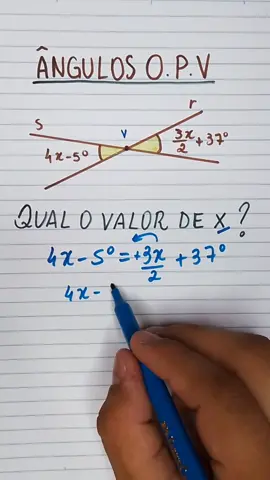 ÂNGULOS O.P.V
S
r
V
4x-5°
3x/2 + 37°
QUAL O VALOR DE x?
4x - 5° = +3x/2 + 37°
4x -